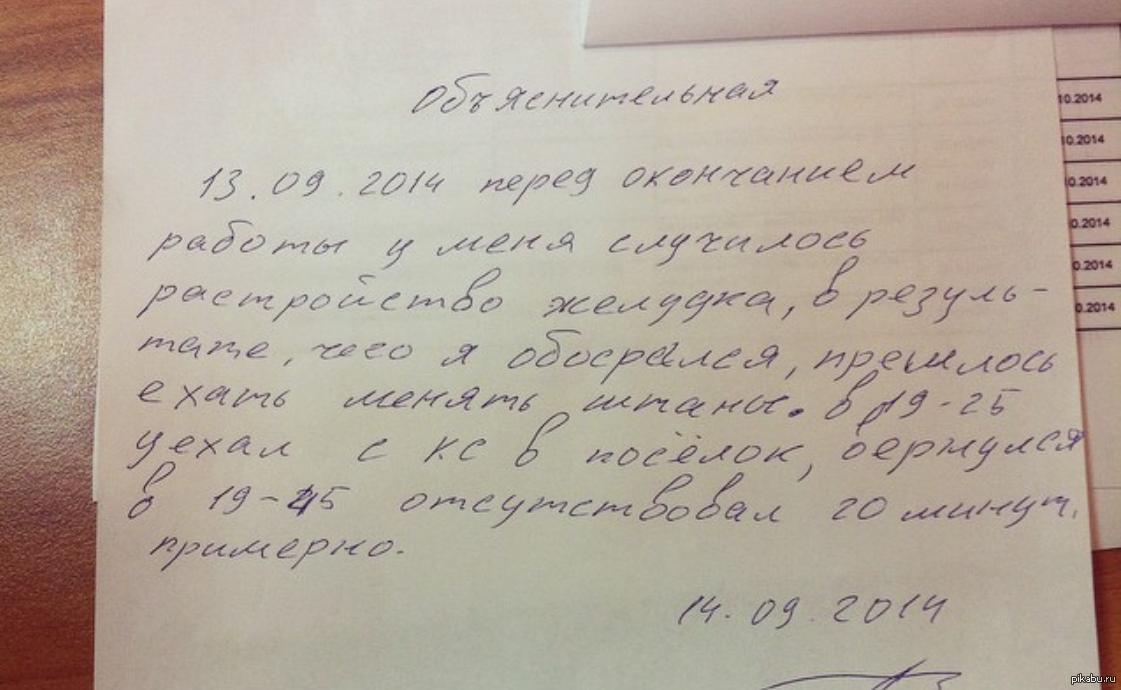 Объяснительная
13.09.2014 перед окончанием
работы у меня случилось
растройство желудка, в резуль-
тате, чего я обосрался, прешлось
ехать менять штаны. в 19-25
уехал с КС в посёлок, вернулся
в 19-45 отсутствовал 20 минут,
примерно.
14.09.2014
10.2014
10.2014
10.2014
0.2014
0.2014
0.2014
pikabu.ru